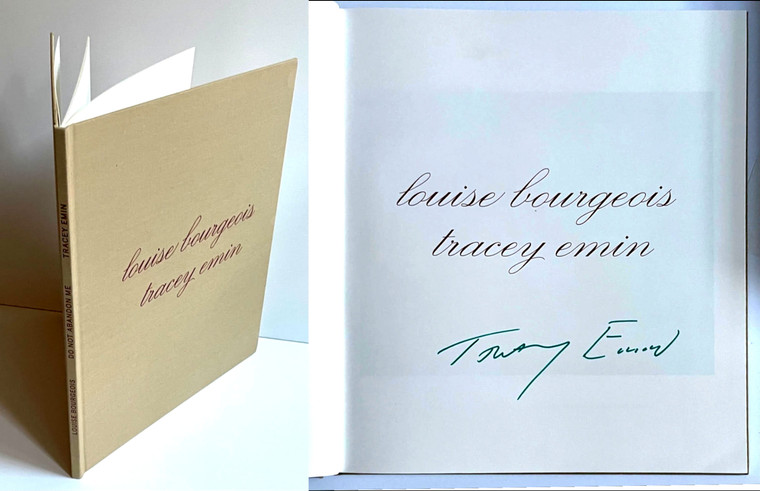 LOUISE BOURGEOIS DO NOT ABANDON ME TRACEY EMIN
louise bourgeois
tracey emin
louise bourgeois
tracey emin
Tracey Emin